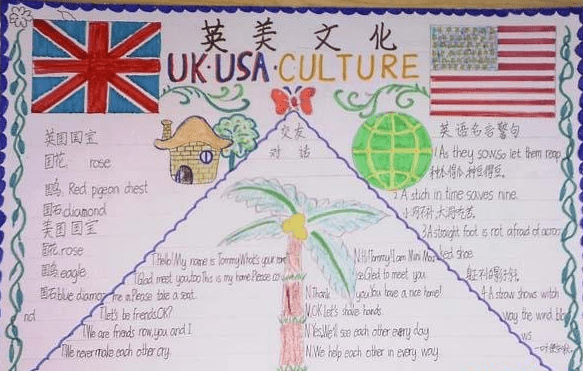 英美文化
UK·USA·CULTURE
英国国宝
国花 rose
国鸟 Red pigeon chest
国石 diamond
美国国宝
国花 rose
国鸟 eagle
国石 blue diamond
交友
对话
T Hello! My name is Tommy What's your
T Glad meet you too This is my home Please
me in Please take a seat.
T let's be friends, OK?
T We are friends now, you and I
T We never make each other cry.
N Hi Tommy I am Mini
Glad to meet you
N Thank you You have a nice home!
N OK Let's shake hands
N Yes We'll see each other every day
N. We help each other in every way.
英语名言警句
1 As they sow, so let them reap
2 A stich in time saves nine
3 A straight foot is not afraid of a
ked shoe
4 A straw shows witch
way the wind blo
ws